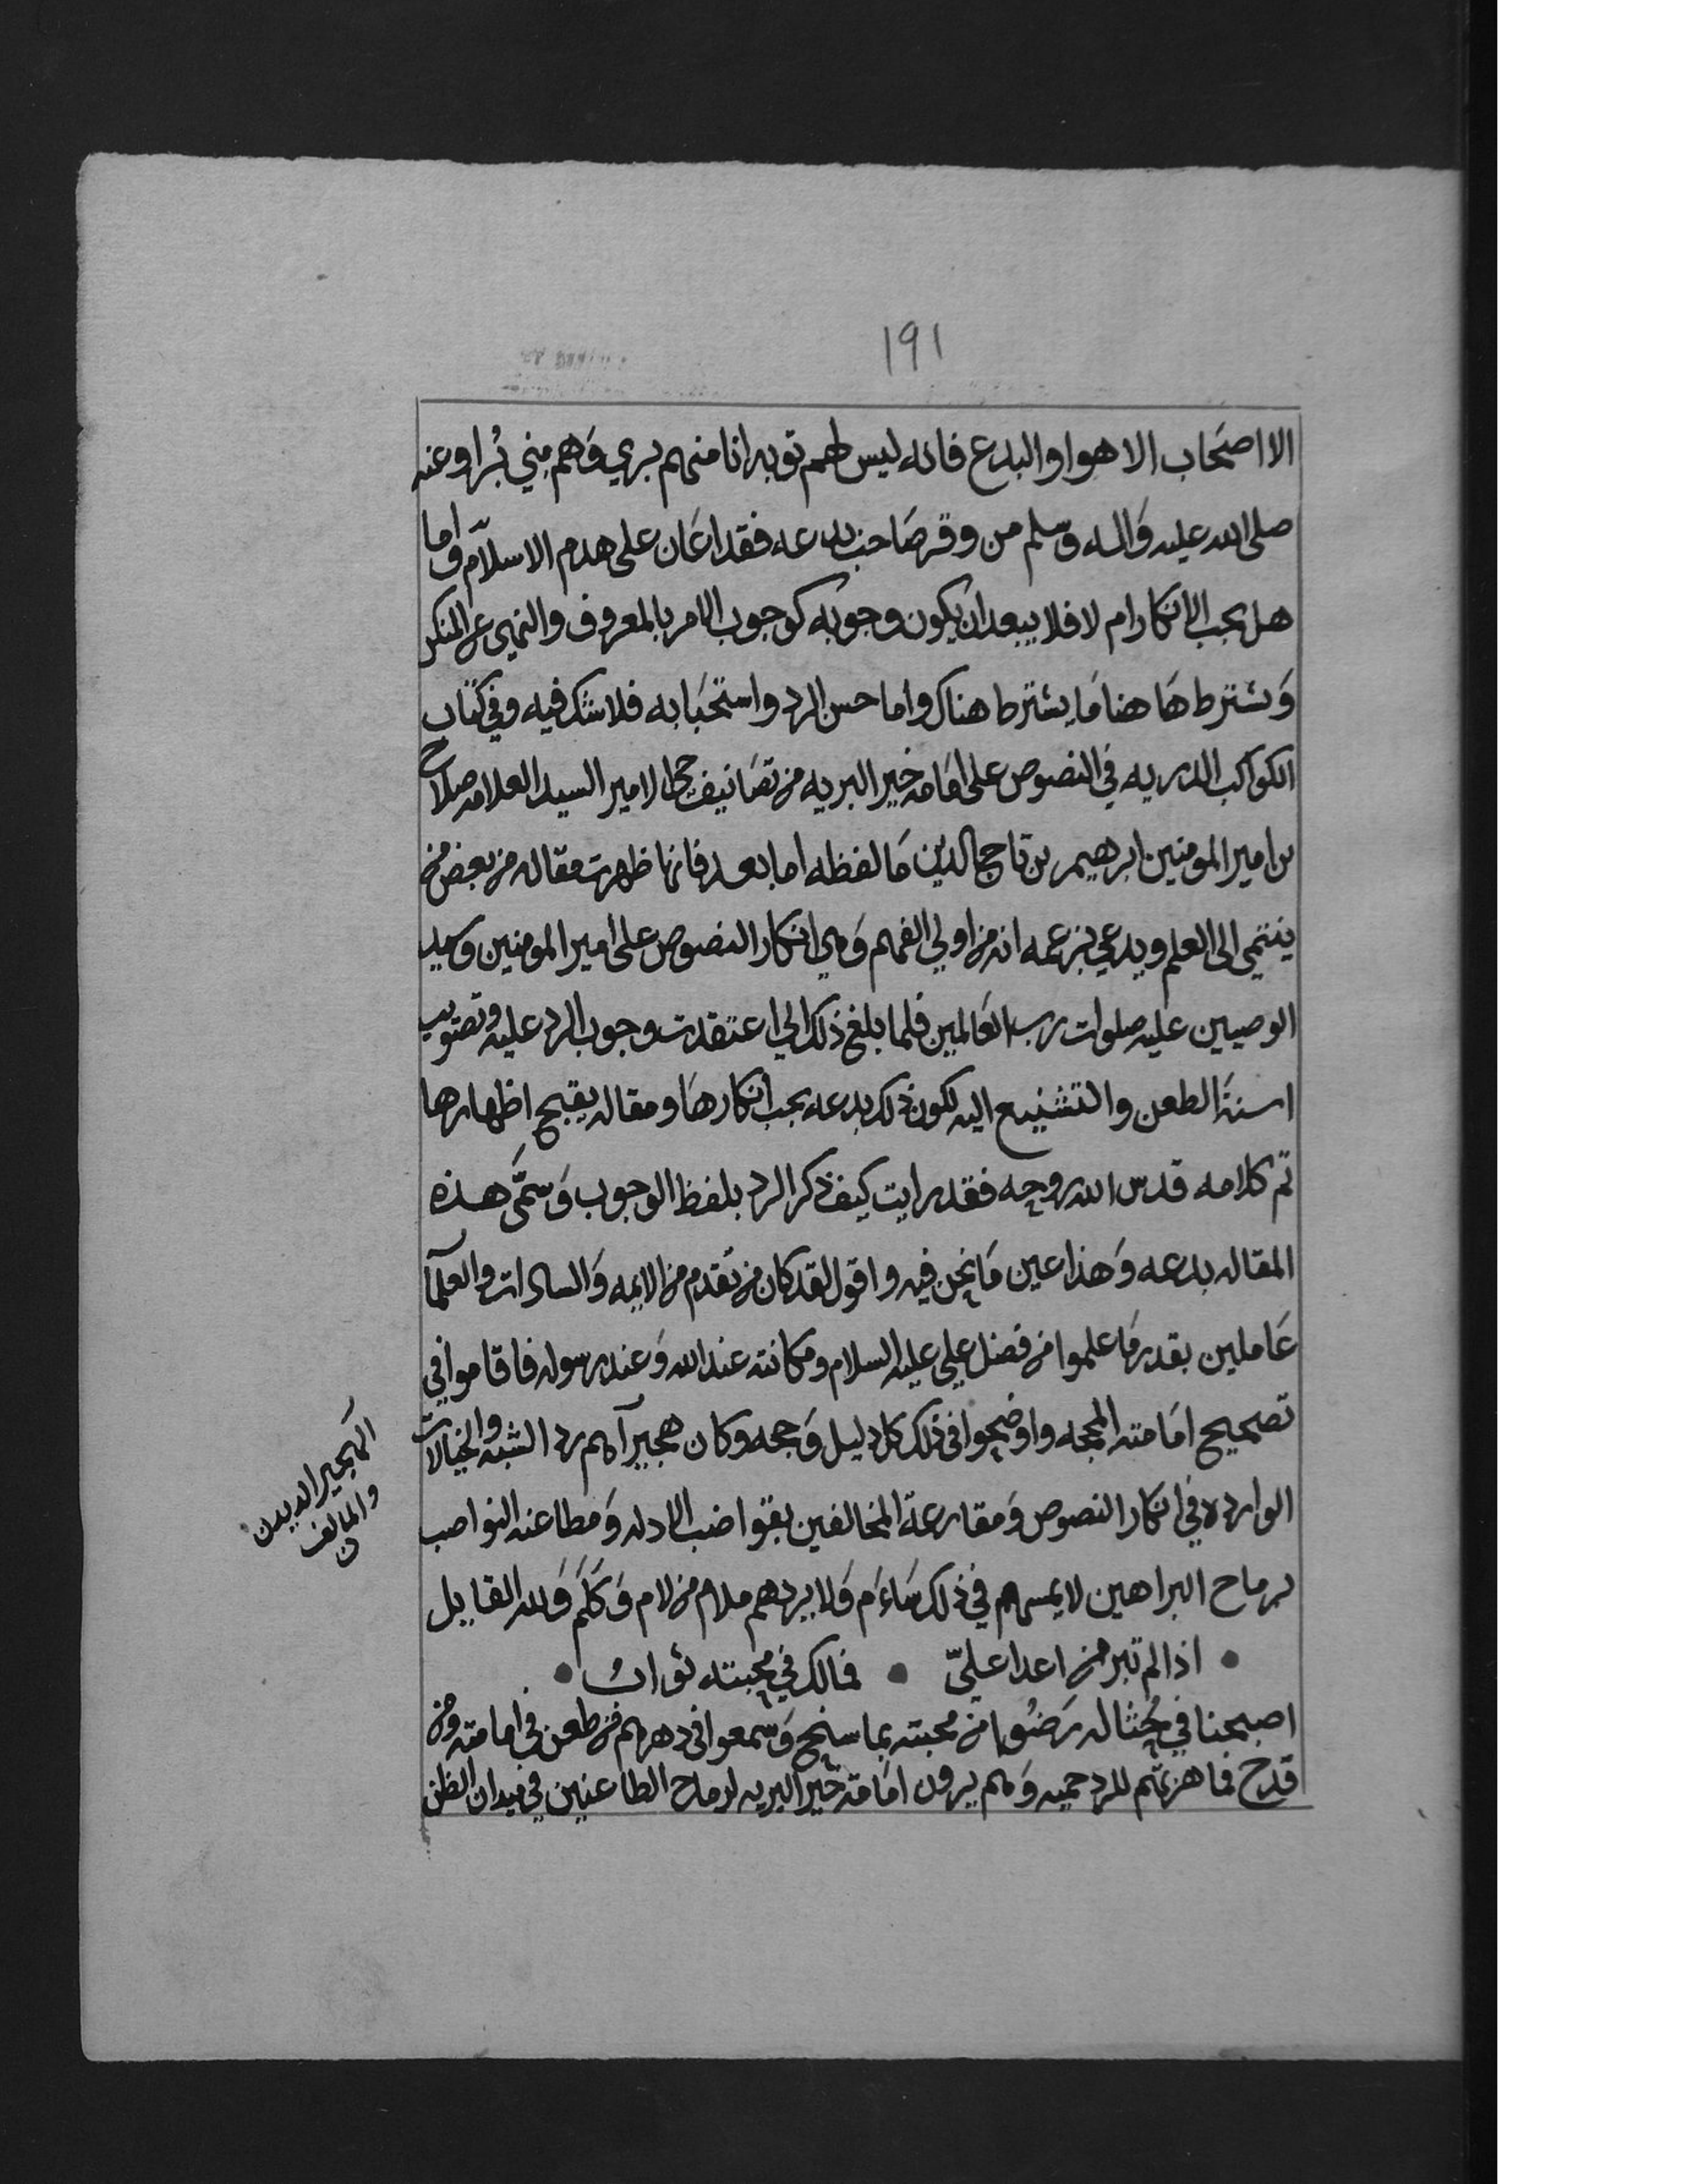 ١٩١
الا اصحاب الاهوا والبدع فانه ليس لهم توبه انا منهم بري وهم مني بُراو عنه
صلى الله عليه واله وسلم من وقر صاحب بدعه فقد اعان على هدم الاسلام واما
هل يجب الانكار ام لا فلا يبعد ان يكون وجوبه كوجوب الامر بالمعروف والنهي عن المنكر
ويشترط هاهنا ما يشترط هناك واما حسن الرد واستحبابه فلا شك فيه وفي كتاب
الكواكب الدريه في النصوص على امامه خير البريه من تصانيف حي الامير السيد العلامه صلاح
بن امير المومنين ابرهيم بن تاج الدين ما لفظه اما بعد فانها ظهرت مقاله من بعض من
ينتمي الى العلم ويدعي بزعمه انه من اولي الفهم وهي انكار النصوص على امير المومنين وسيد
الوصيين عليه صلوات رب العالمين فلما بلغ ذلك الي اعتقدت وجوب الرد عليه وتصويب
اسنة الطعن والتشنيع اليه لكون ذلك بدعه يجب انكارها ومقاله يقبح اظهارها
تم كلامه قدس الله روحه فقد رايت كيف ذكر الرد بلفظ الوجوب وسمّى هذه
المقاله بدعه وهذا عين ما نحن فيه واقول لقد كان من تقدم من الايمه والسادات والعلمآ
عاملين بقدر ما علموا من فضل علي عليه السلام ومكانته عند الله وعند رسوله فاقاموا في
تصحيح امامته المحجه واوضحوا في ذلك كل دليل وحجه وكان هجيرآهم رد الشبه والخيالات
الوارده في انكار النصوص ومقارعة المخالفين بقواضب الادله ومطاعنه النواصب
برماح البراهين لا يمسهم في ذلك سَاءَم ولا يردهم ملام من لام وكلَم ولله القايل
• اذا لم تبر من اعدا عليّ • فمالك في محبته ثواب •
اصبحنا في حُثاله رَضُوا من محبته بما سنح وسمعوا في دهرهم من طعن في امامته ومن
قدح فما هزتهم للرد حميه وهم يرون امامة خير البريه لرماح الطاعنين في ميدان الظن
الهجير الديدن
والمالف